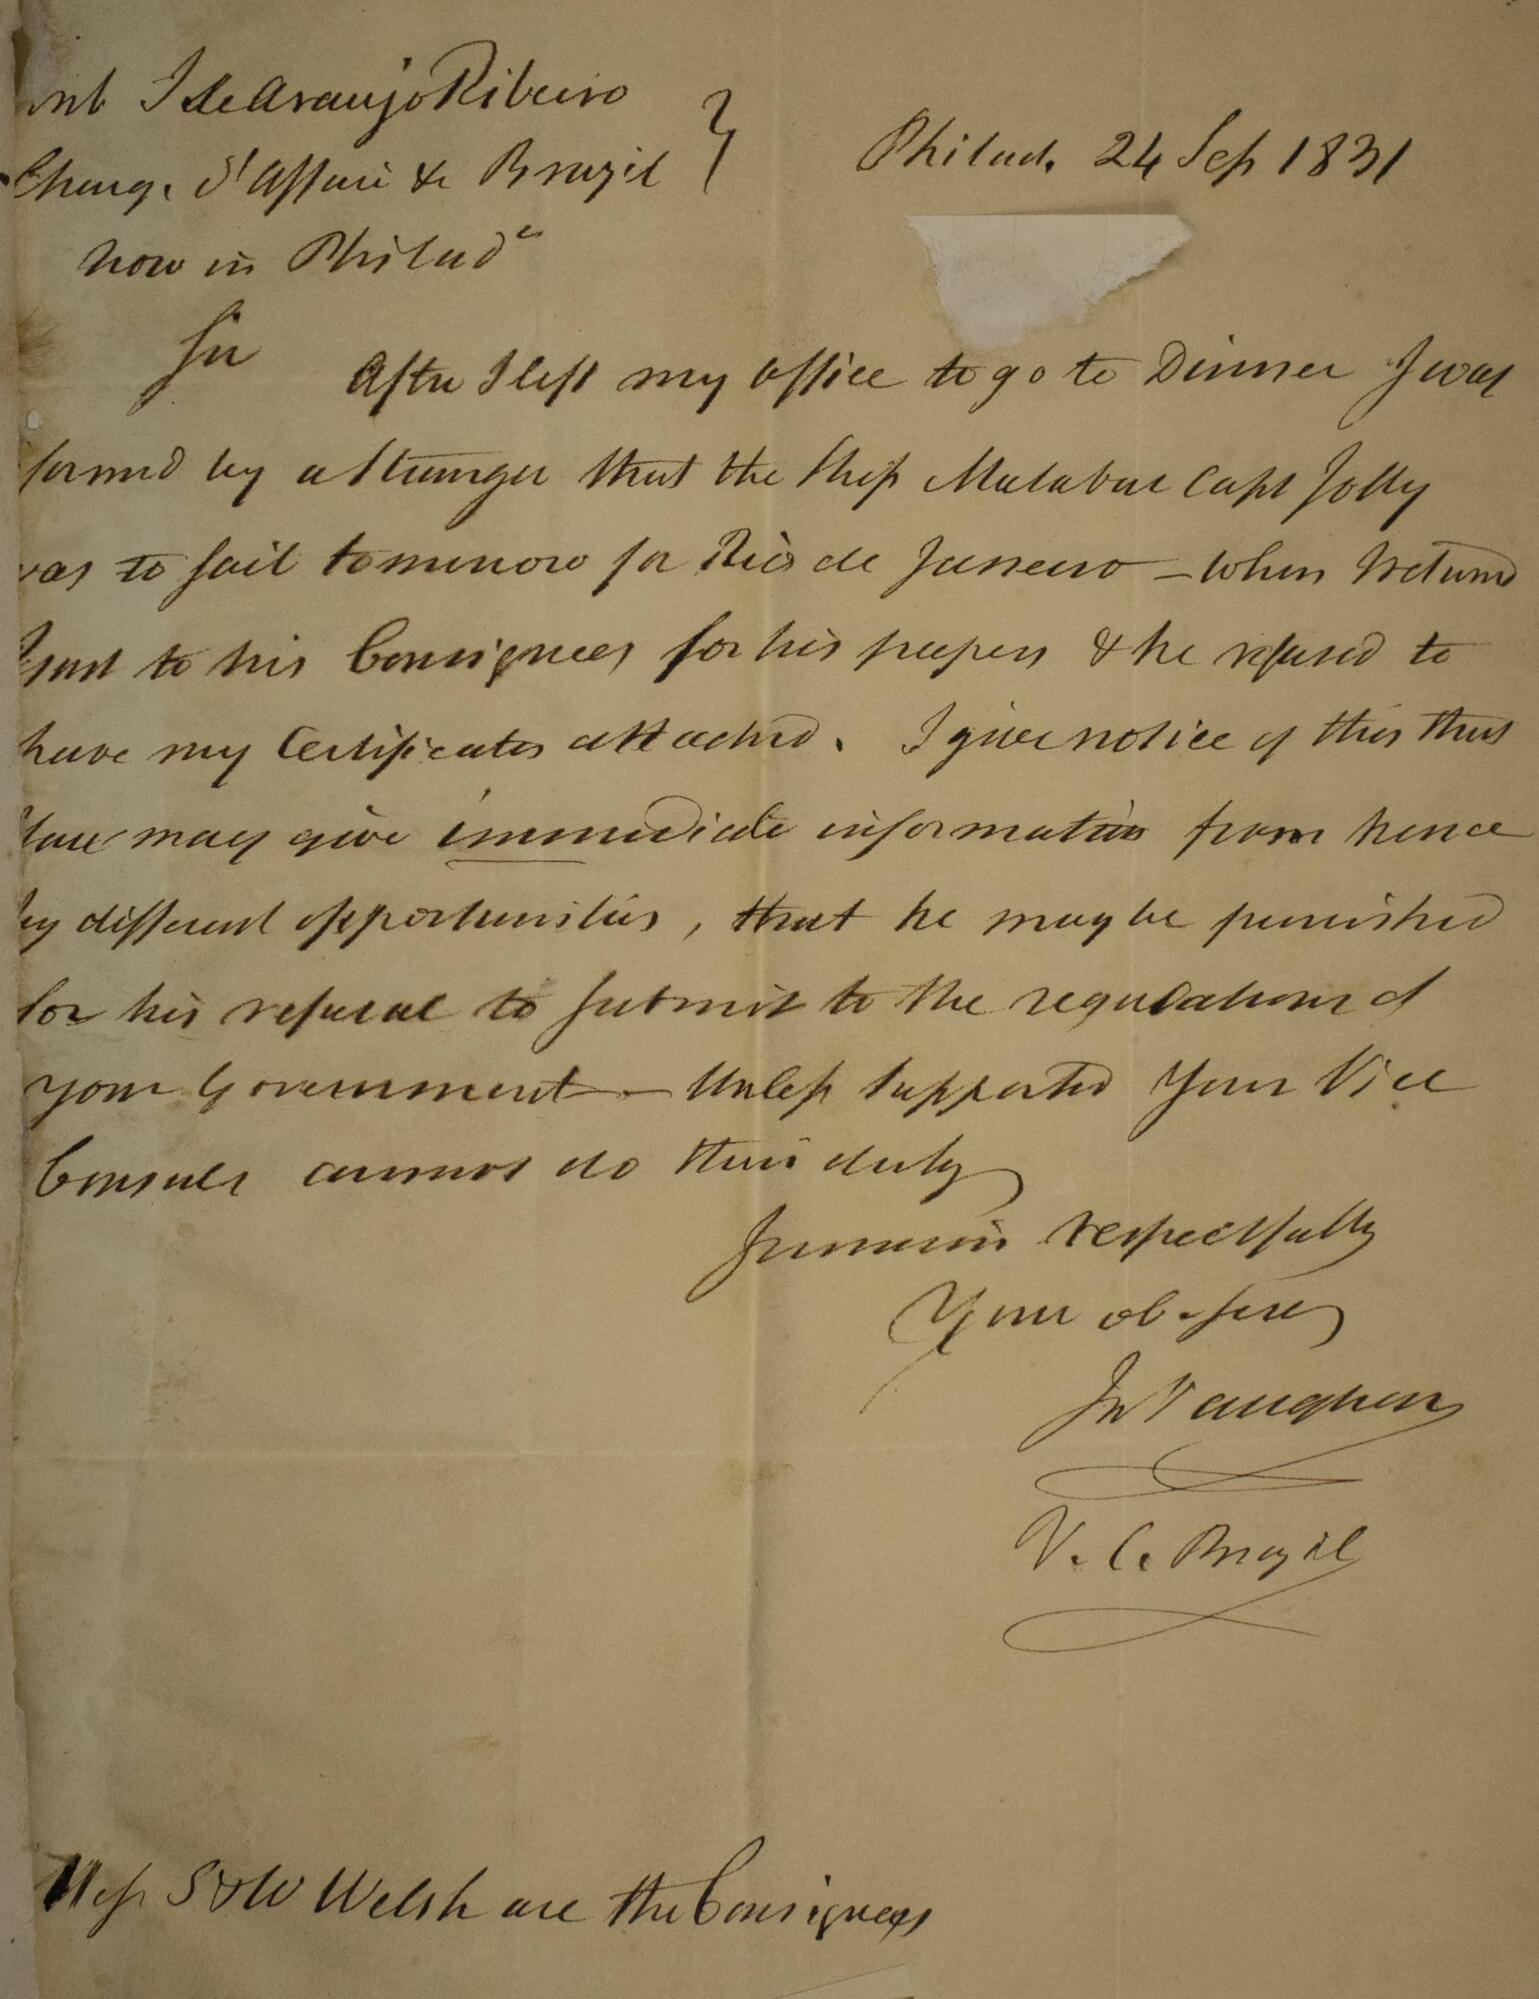 J de Araujo Ribeiro
Charg. d'Affair de Brazil
Philad. 24 Sep 1831
now in Philada
Sir
After I left my office to go to Dinner I was
formed by a Stranger that the Ship Malabar Capt Jolly
was to sail tomorrow for Rio de Janeiro – when I returnd
I sent to his Consignees for his papers & he refused to
have my Certificates attached. I give notice of this that
You may give immediate information from hence
by different opportunities, that he may be punished
for his refusal to submit to the regulations of
your Government – Unless supported Your Vice
Consuls cannot do their duty
I remain respectfully
Your ob. serv
Jn Vaughan
V. C. Brazil
Mess S & W Welsh are the Consignees